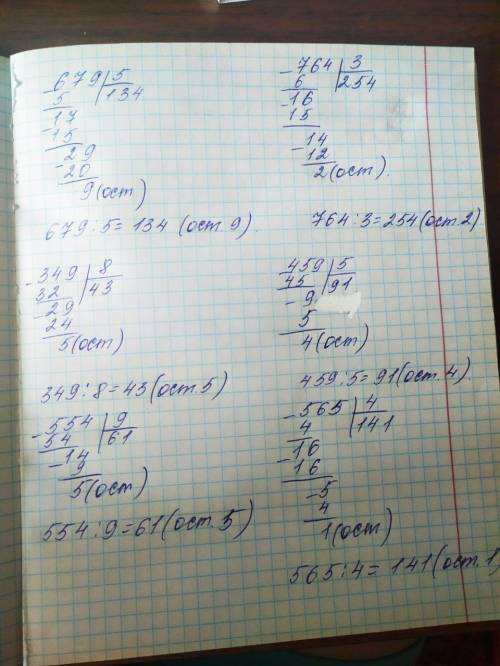 -679|5
5 |134
-17
15
-29
20
9(ост)
679:5=134 (ост.9).
-764|3
6 |254
-16
15
-14
12
2(ост).
764:3=254(ост.2)
-349|8
32 |43
29
24
5(ост)
349:8=43(ост.5)
459|5
45 |91
-9
5
4(ост)
459:5=91(ост.4).
-554|9
54 |61
-14
9
5(ост)
554:9=61(ост.5)
-565|4
4 |141
-16
16
-5
4
1(ост)
565:4=141(ост.1)